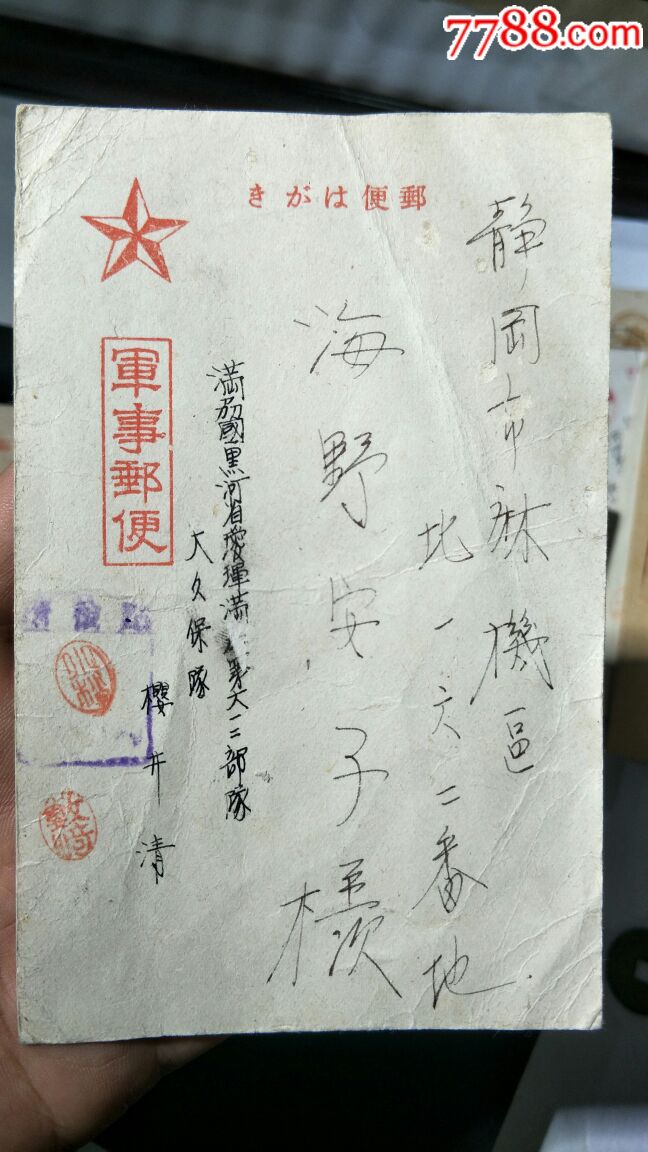 7788.com
きがは便郵
静岡市麻機區
北一六二番地
海野安子様
満州國黒河省璦琿満第六二部隊
大久保隊
櫻井清
軍事郵便
検閲済